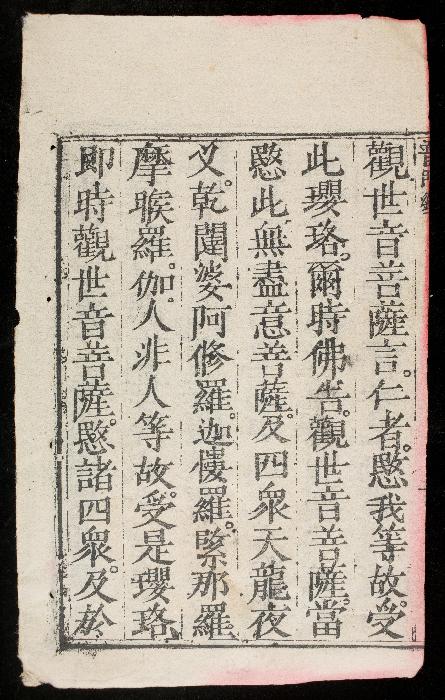 普門經
觀世音菩薩言。仁者。愍我等故。受
此瓔珞。爾時佛告。觀世音菩薩。當
愍此無盡意菩薩。及四衆天龍夜
叉。乾闥婆阿修羅迦樓羅。緊那羅
摩睺羅。伽。人非人等故。受是瓔珞。
即時觀世音菩薩。愍諸四衆。及於